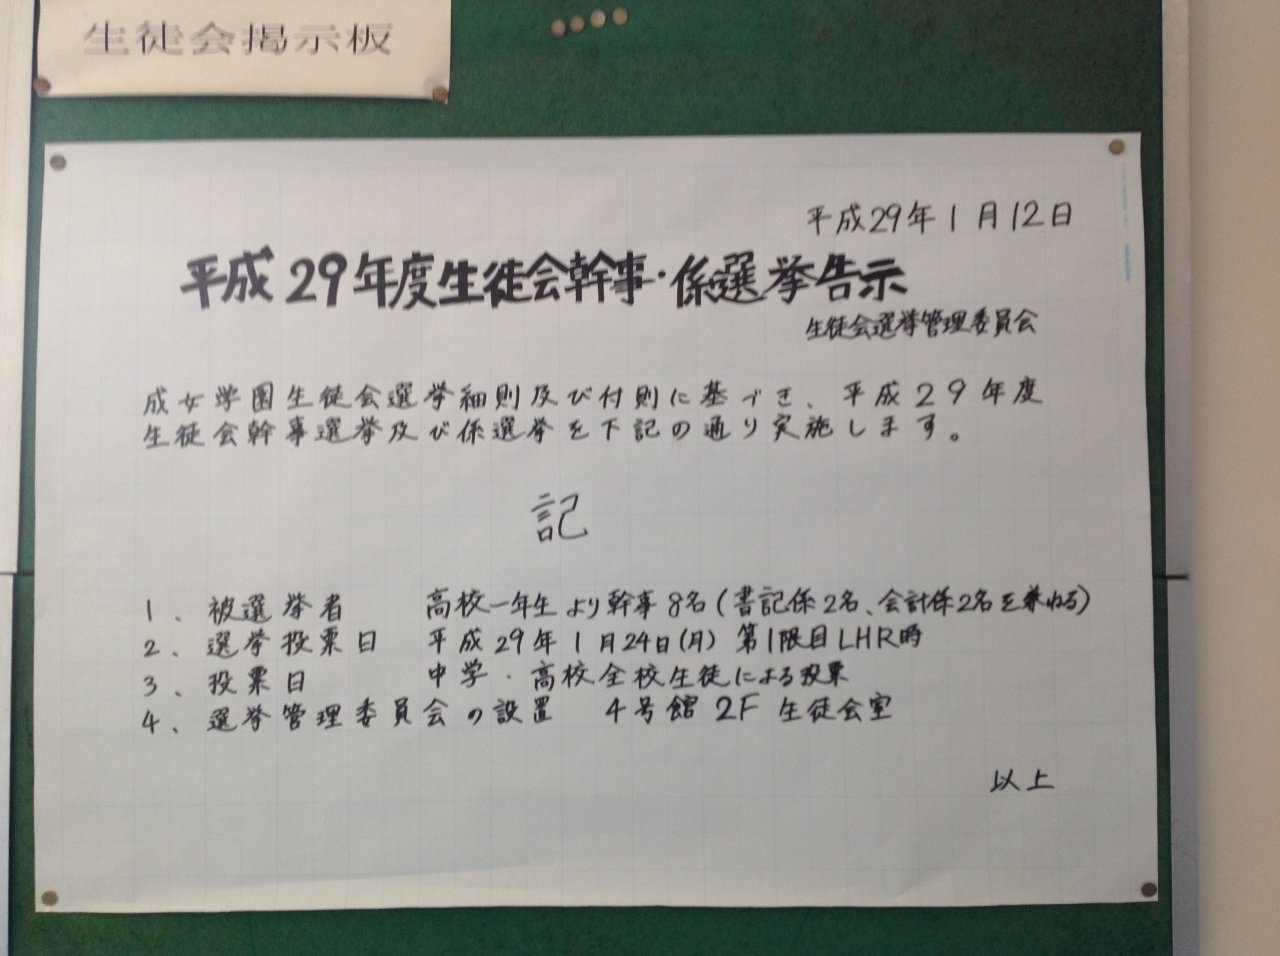 生徒会掲示板
平成29年1月12日
平成29年度生徒会幹事・係選挙告示
生徒会選挙管理委員会
成女学園生徒会選挙細則及び付則に基づき、平成29年度
生徒会幹事選挙及び係選挙を下記の通り実施します。
記
1、被選挙者 高校一年生より幹事8名(書記係2名、会計係2名を兼ねる)
2、選挙投票日 平成29年1月24日(月) 第1限目LHR時
3、投票日 中学・高校全校生徒による投票
4、選挙管理委員会の設置 4号館2F生徒会室
以上